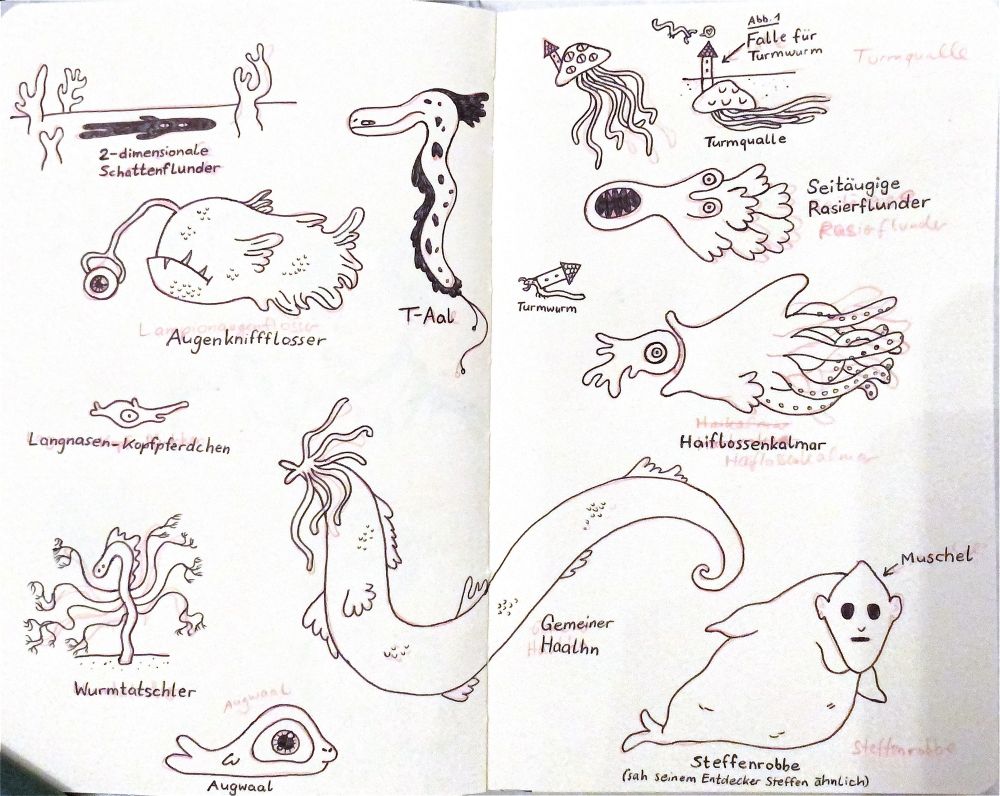 2-dimensionale
Schattenflunder
T-Aal
Augenkniffflosser
Langnasen-Kopfpferdchen
Wurmtatschler
Augwaal
Augwaal
Abb. 1
Falle für
Turmwurm
Turmqualle
Turmqualle
Seitäugige
Rasierflunder
Rasierflunder
Turmwurm
Haiflossenkalmar
Muschel
Gemeiner
Haalhn
Steffenrobbe
Steffenrobbe
(sah seinem Entdecker Steffen ähnlich)